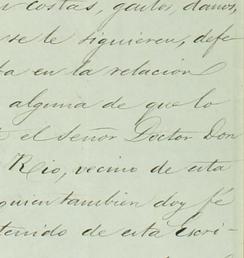 costas, gastos, daños,
se le siguieren, defe
en la relacion
alguna de que lo
el señor Doctor Don
Rio, vecino de esta
quien tambien doy fé
tenido de esta escri-